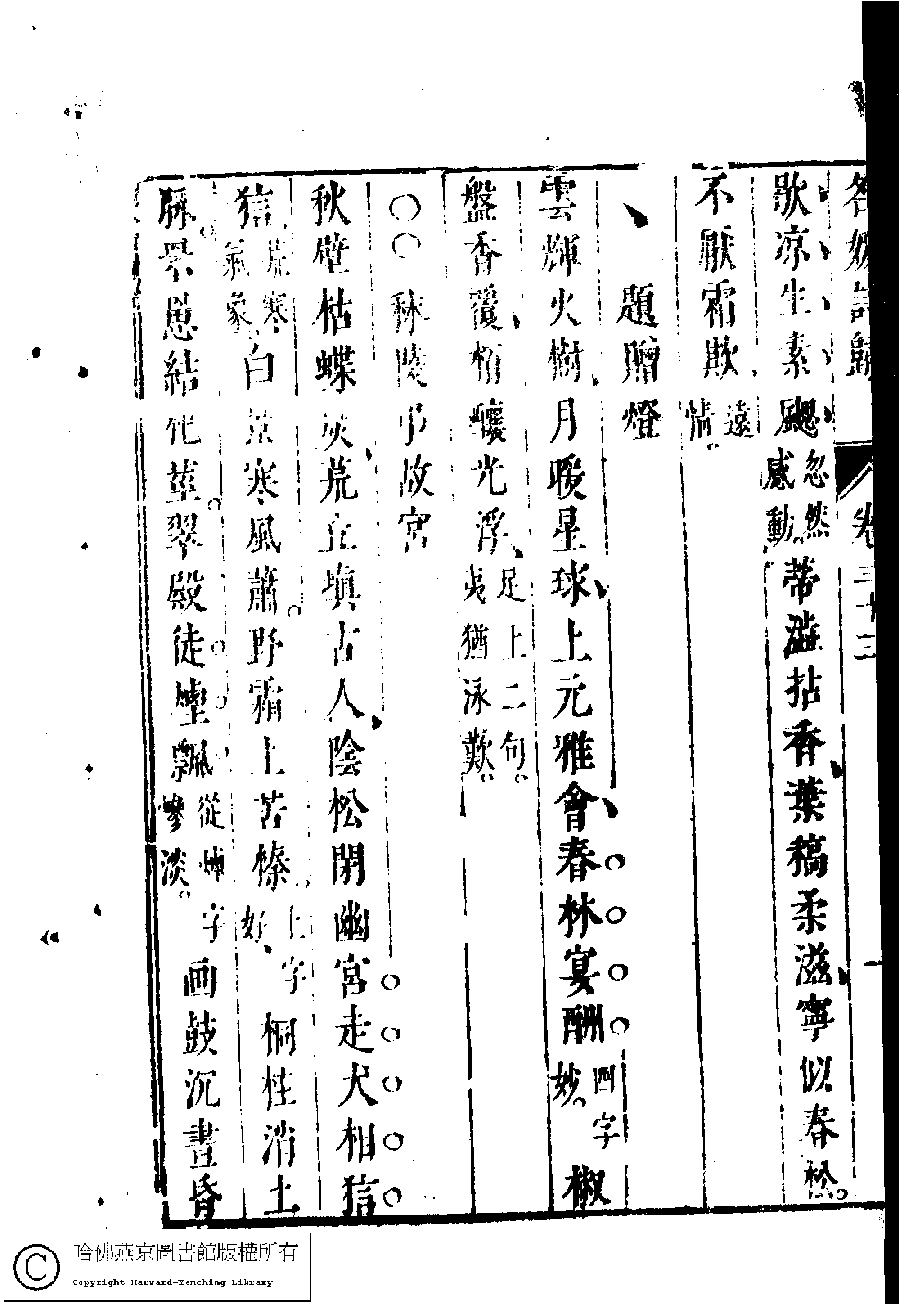 名媛詩歸 卷三十三 一
歇凉生素颸忽然感動蒂澁拈香葉稿柔滋寧似春松
不厭霜欺遠情
題贈燈
雲輝火樹月暖星球上元雅會春林宴酬四字妙椒
盤香覆栢釀光浮足上二句夷猶泳歎
秣陵弔故宮
秋壁枯蝶灰荒丘填古人陰松閉幽宮走犬相狺
狺荒寒氣象白草寒風蕭野霜上苦榛上字好桐柱消土
結莖翠殿徒飄從字慘淡画鼓沉晝昏
哈佛燕京圖書館版權所有
Copyright Harvard-Yenching Library